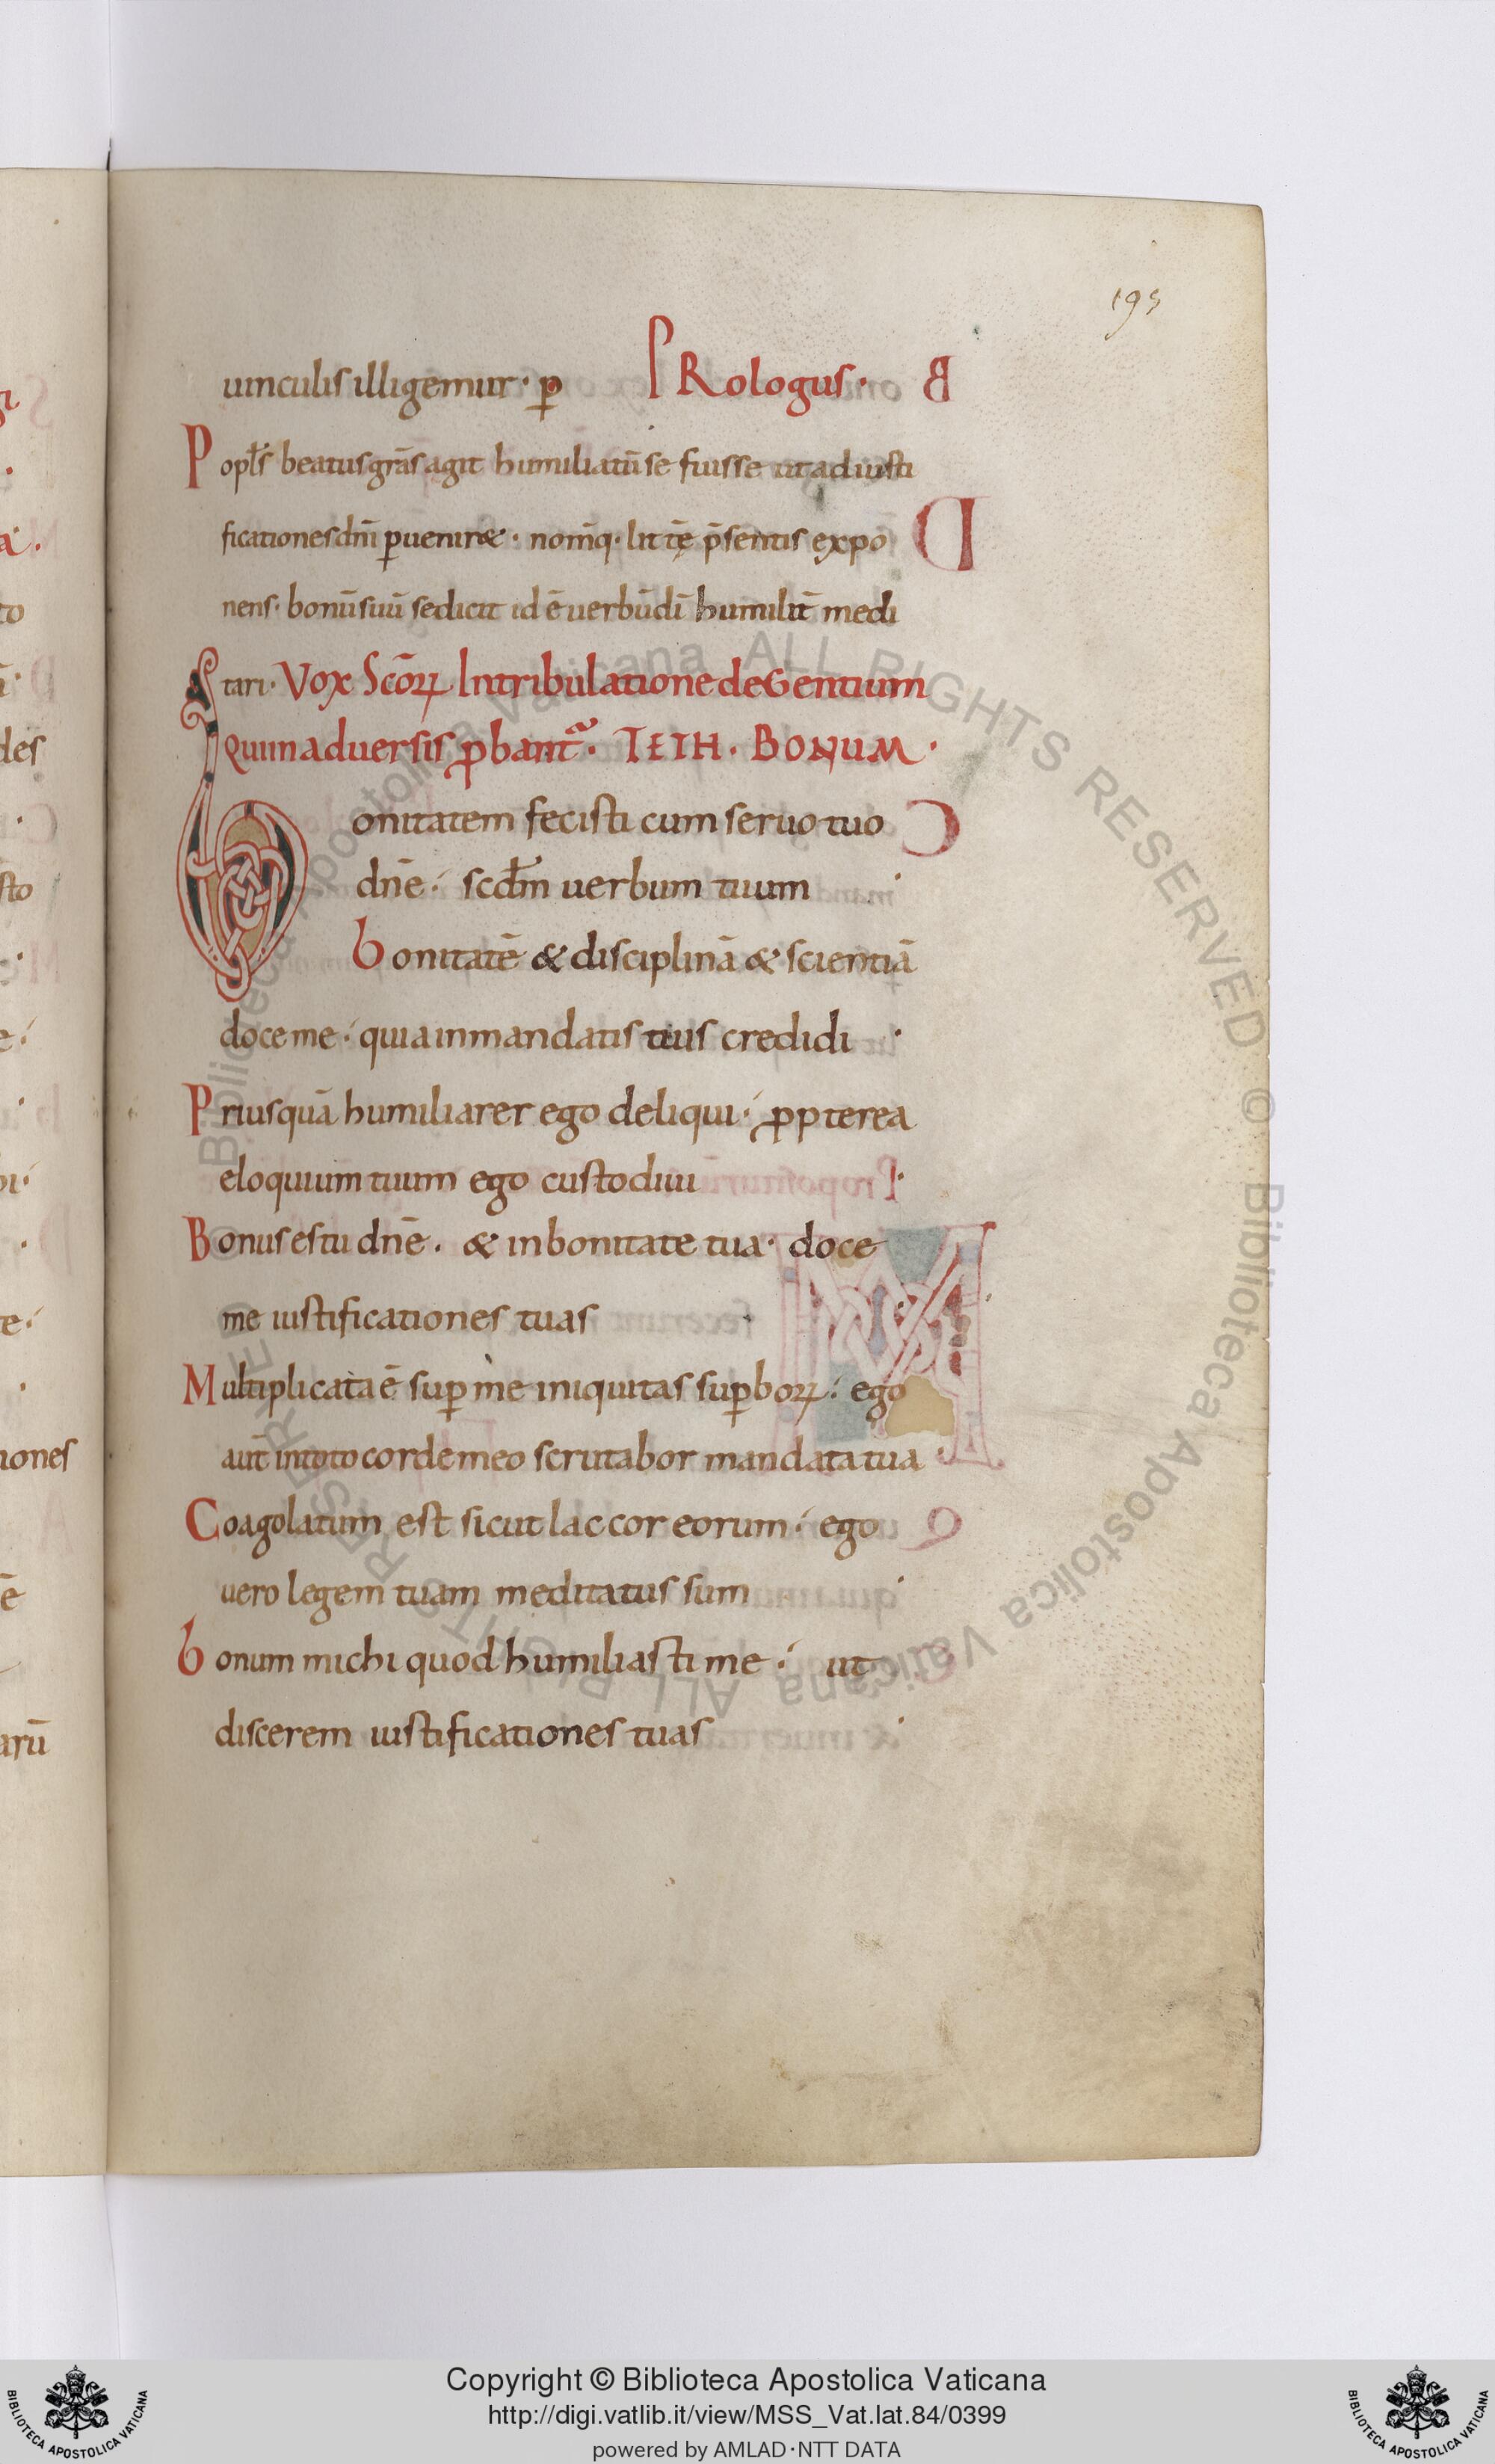 195
uinculis illigemur · p̄ PRologus ·
Popl̄s beatus grā̄s agit humiliatū se fuisse ut ad iusti
ficationes dn̄i ꝑuenir& · nom̄q · litt̄ę p̄sentis expo
nens · bonū suū se dicit id ē uerbū dī humilit̄ medi
tari · Vox Scōꝝ In tribulatione de Gentium
Qui in aduersis ꝓbant᷑ · TETH · BONUM ·
Bonitatem fecisti cum seruo tuo
dn̄e : scd̄m uerbum tuum ·
bonitatē & disciplinā & scientiā
doce me : quia in mandatis tuis credidi ·
Priusquā humiliarer ego deliqui : ꝓpterea
eloquium tuum ego custodiui ·
Bonus es tu dn̄e . & in bonitate tua · doce
me iustificationes tuas ·
Multiplicata ē suꝑ me iniquitas suꝑboꝝ : ego
aut̄ in toto corde meo scrutabor mandata tua ·
Coagolatum est sicut lac cor eorum : ego
uero legem tuam meditatus sum ·
bonum michi quod humiliasti me : ut
discerem iustificationes tuas ·
Copyright © Biblioteca Apostolica Vaticana
http://digi.vatlib.it/view/MSS_Vat.lat.84/0399
powered by AMLAD·NTT DATA